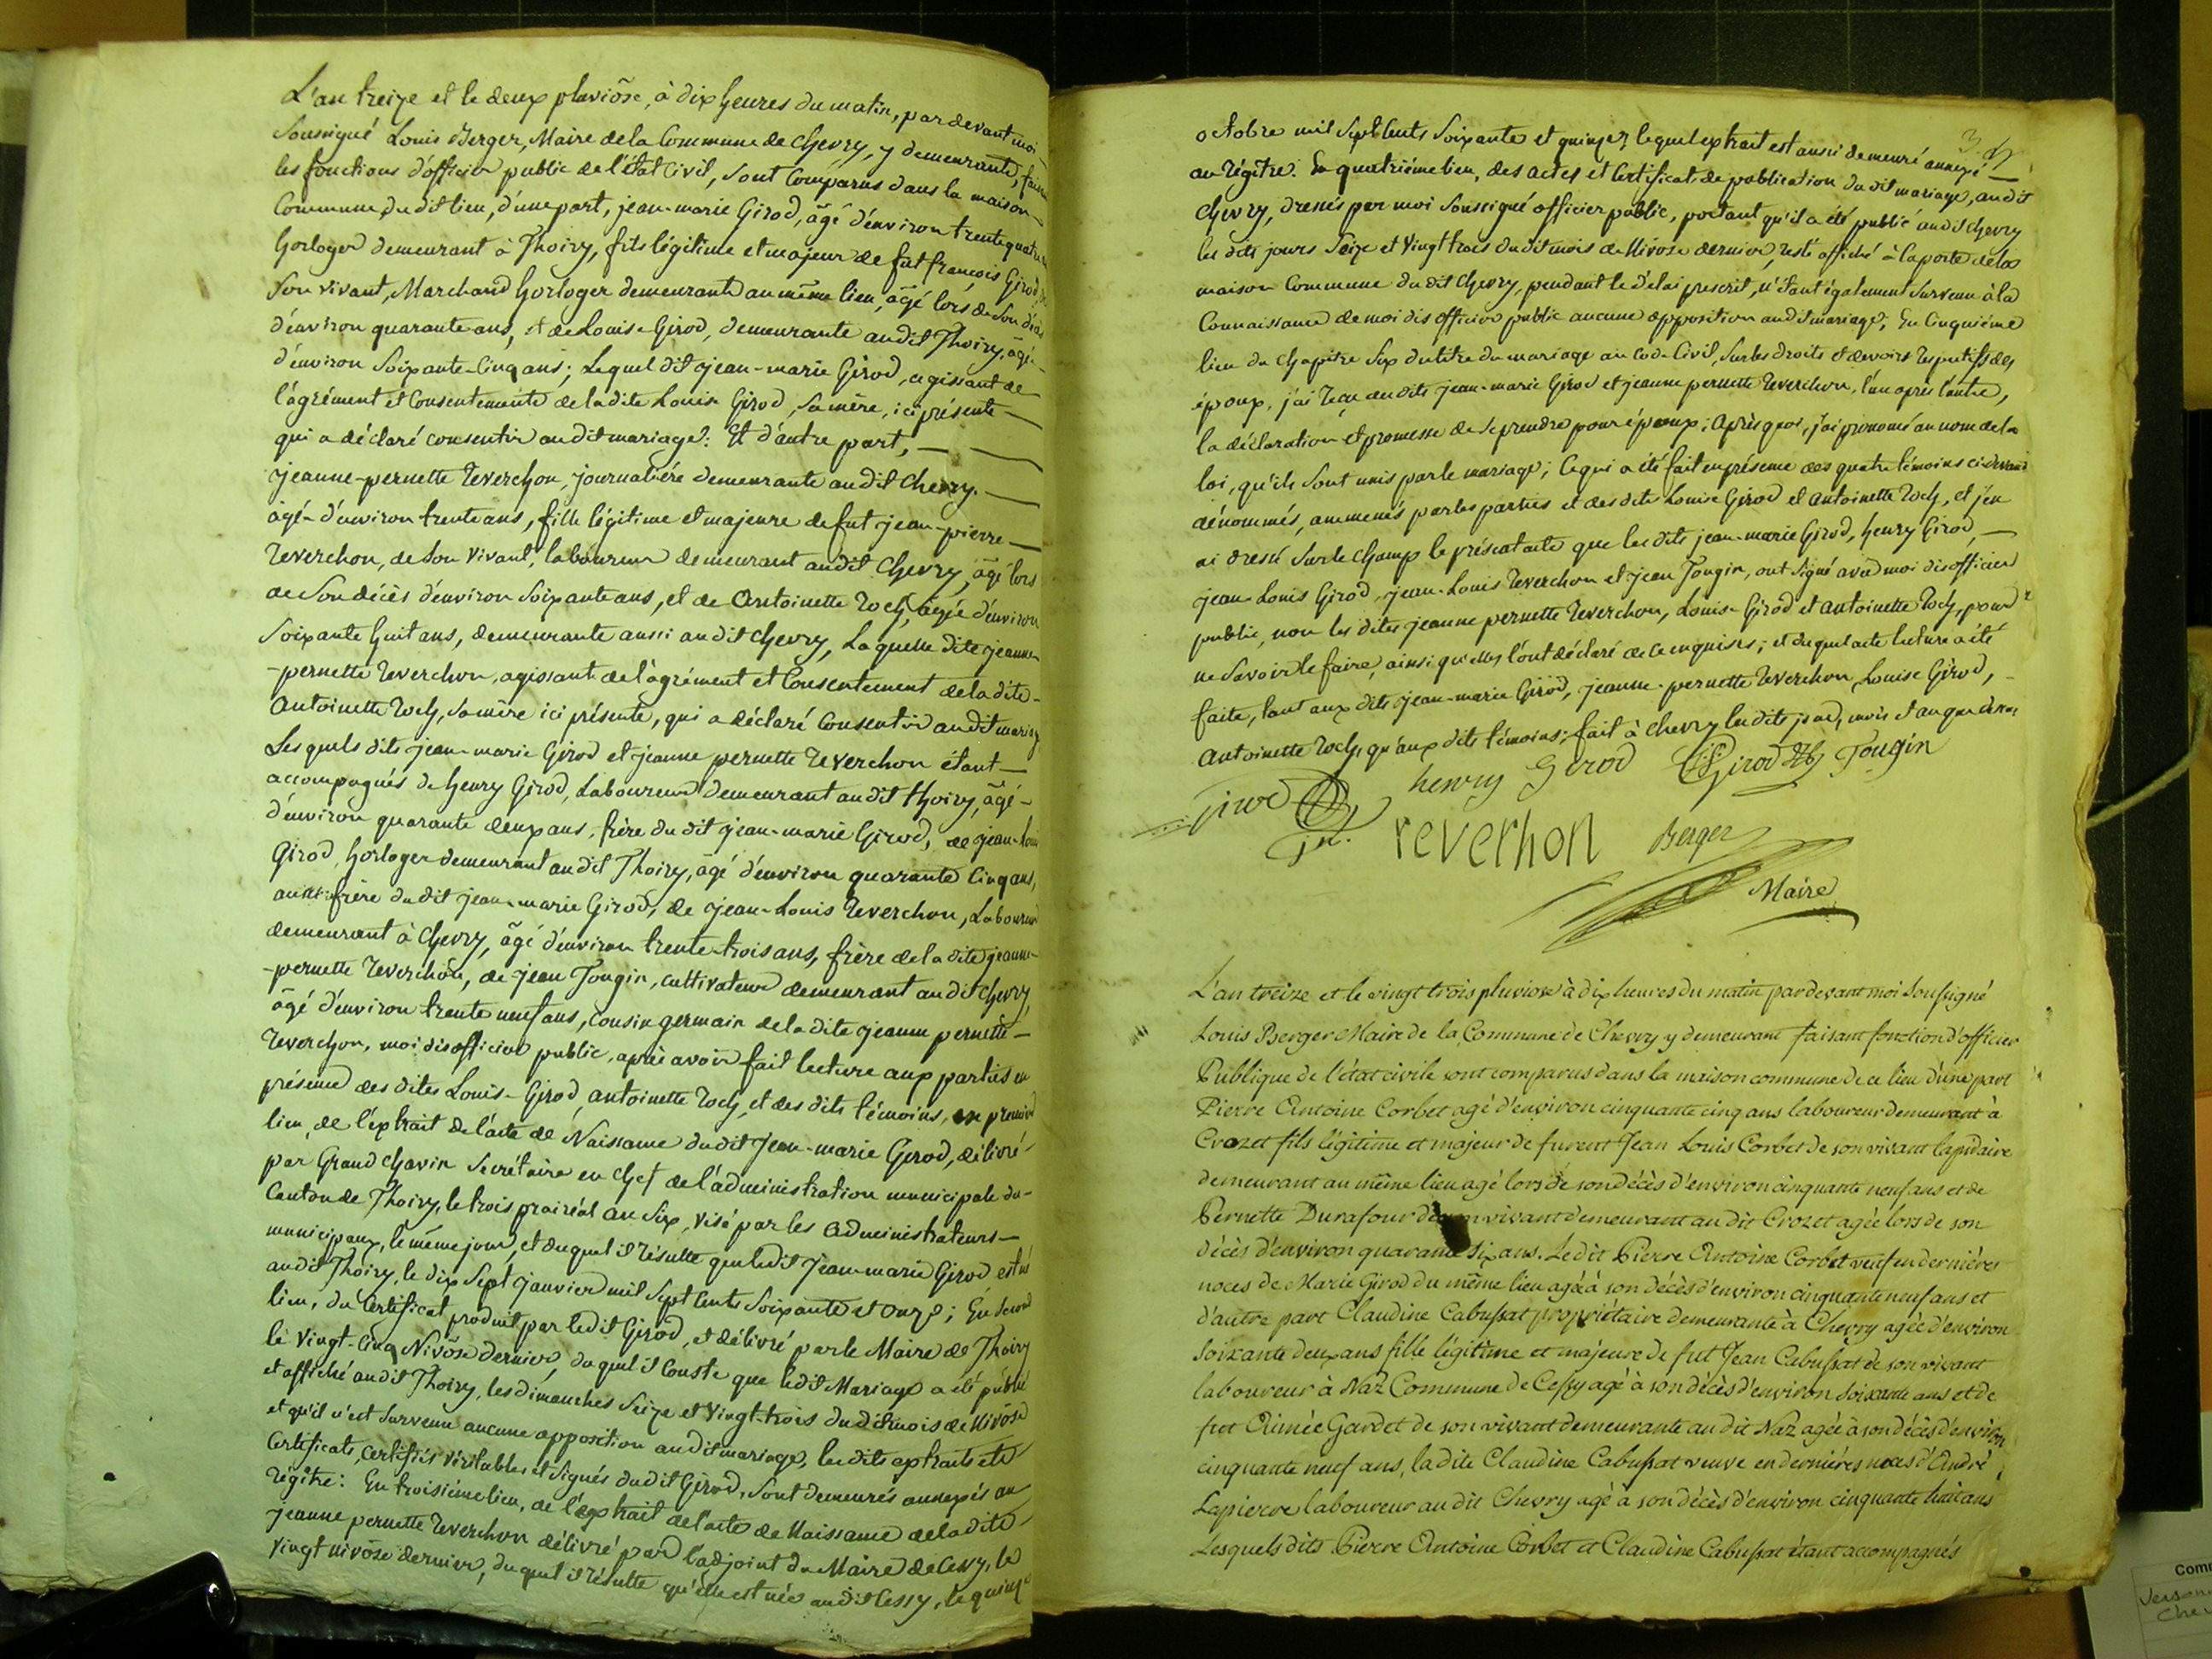 L'an treize et le deux pluviôse, à dix heures du matin, pardevant moi
soussigné Louis Berger, Maire de la Commune de Chevry, y demeurante,
les fonctions d'officier public de l'état Civil, sont Comparus dans la maison
Commune du dit lieu, d'une part, jean-marie Girod, âgé d'environ trente quatre
horloger demeurant à Thoiry, fils légitime et majeur de fut françois Girod
son vivant, Marchand horloger demeurante au même lieu, âgé lors de son
d'environ quarante ans, et de Louise Girod, demeurante audit Thoiry, âgée
d'environ soixante-cinq ans; Lequel dit jean-marie Girod, agissant de
l'agrément et Consentemente de la dite Louise Girod, sa mère, ici présente
qui a déclaré consentir audit mariage: Et d'autre part,
jeanne-pernette Reverchon, journalière demeurante audit Chevry.
âgée d'environ trente ans, fille légitime et majeure de fut jean-pierre
Reverchon, de son vivant, laboureur demeurant audit Chevry, âgé lors
de son décès d'environ soixante ans, et de Antoinette Roch, âgée d'environ
soixante huit ans, demeurante aussi audit Chevry, Laquelle dite jeanne
-pernette Reverchon, agissant de l'agrément et Consentement de la dite
Antoinette Roch, sa mère ici présente, qui a déclaré Consentir audit mariage
Lesquels dits jean-marie Girod et jeanne pernette Reverchon étant
accompagnés de henry Girod, Laboureur demeurant audit thoiry, âgé
d'environ quarante deux ans, frère du dit jean-marie Girod, de jean-Louis
Girod, horloger demeurant audit Thoiry, âgé d'environ quarante Cinq ans,
aussi frère du dit jean-marie Girod, de jean-Louis Reverchon, Laboureur
demeurant à Chevry, âgé d'environ trente-trois ans, frère de la dite jeanne
-pernette Reverchon, de jean Tougin, cultivateur demeurant audit Chevry
âgé d'environ trente neuf ans, Cousin germain de la dite jeanne pernette
Reverchon, moi dis officier public, après avoir fait lecture aux parties en
présence des dites Louise Girod, antoinette Roch, et des dits témoins, en premier
lieu, de l'extrait de l'acte de Naissance du dit jean-marie Girod, délivré
par Grand Chavin Secrétaire en Chef de l'administration municipale du
Canton de Thoiry, le trois prairéal an Six, visé par les administrateurs
municipaux, le même jour, et duquel il résulte que le dit jean-marie Girod est né
audit Thoiry, le dix sept janvier mil sept cents soixante et onze; En second
lieu, du Certificat produit par le dit Girod, et délivré par le Maire de Thoiry
le vingt-cinq Nivôse dernier, duquel il Conste que ledit Mariage a été publié
et affiché audit Thoiry, les dimanches seize et vingt-trois dudit mois de Nivôse
et qu'il n'est survenu aucune opposition audit mariage, les dits extraits et
Certificats, Certifiés véritables et signés dudit Girod, sont demeurés annexés au
régitre: En troisième lieu, de l'extrait de l'acte de Naissance de la dite
jeanne pernette Reverchon délivré par l'adjoint du Maire de Cessy, le
vingt nivôse dernier, duquel il résulte qu'elle est née audit Cessy, le quinze
octobre mil sept Cents soixante et quinze, lequel extrait est aussi demeuré annexé
au régitre. En quatrième lieu, des actes et Certificat de publication du dit mariage, audit
Chevry, dressés par moi soussigné officier public, portant qu'il a été publié audit Chevry
les dits jours seize et vingt trois dudit mois de Nivôse dernier, resté affiché à la porte de la
maison Commune du dit Chevry, pendant le délai prescrit, n'étant également survenu à la
Connaissance de moi dis officier public aucune opposition audit mariage; En Cinquième
lieu du Chapitre Six du titre du mariage au Code Civil, sur les droits et devoirs respectifs des
époux, j'ai reçu des dits jean-marie Girod et jeanne pernette Reverchon, l'un après l'autre,
la déclaration et promesse de se prendre pour époux; après quoi, j'ai prononcé au nom de la
loi, qu'ils sont unis par le mariage; Ce qui a été fait en présence des quatre témoins ci-devant
dénommés, ammenés par les parties et des dites Louise Girod et antoinette Roch, et j'en
ai dressé sur le champ le présent acte que les dits jean-marie Girod, henry Girod,
jean-Louis Girod, jean-Louis Reverchon et jean Tougin, ont signé avec moi dis officier
public, non les dites jeanne pernette Reverchon, Louise Girod et antoinette Roch, pour
ne savoir le faire, ainsi qu'elles l'ont déclaré de ce enquises; et duquel acte lecture a été
faite, tant aux dits jean-marie Girod, jeanne-pernette Reverchon, Louise Girod,
antoinette Roch, qu'aux dits témoins; fait à Chevry les dits jour, mois et an que devant
Girod henry Girod Girod Tougin
reverhon Berger
Maire
L'an treize et le vingt trois pluviose à dix heures du matin pardevant moi soussigné
Louis Berger Maire de la Commune de Chevry y demeurant faisant fonction d'officier
Publique de l'état civile sont comparus dans la maison commune de ce lieu d'une part
Pierre Antoine Corbet agé d'environ cinquante cinq ans laboureur demeurant à
Crozet fils légitime et majeur de furent Jean Louis Corbet de son vivant lapidaire
demeurant au même lieu agé lors de son décès d'environ cinquante neuf ans et de
Pernette Durafour de son vivant demeurant au dit Crozet agée lors de son
décès d'environ quarante six ans. Le dit Pierre Antoine Corbet veuf en dernières
noces de Marie Girod du même lieu agée à son décès d'environ cinquante neuf ans et
d'autre part Claudine Cabussat propriétaire demeurante à Chevry agée d'environ
soixante deux ans fille légitime et majeure de fut Jean Cabussat de son vivant
laboureur à Naz Commune de Cessy agé à son décès d'environ soixante ans et de
fut Aimée Gardet de son vivant demeurante au dit Naz agée à son décès d'environ
cinquante neuf ans, la dite Claudine Cabussat veuve en dernières noces d'André
Lapierre laboureur au dit Chevry agé à son décès d'environ cinquante huit ans
Lesquels dits Pierre Antoine Corbet et Claudine Cabussat étant accompagnés